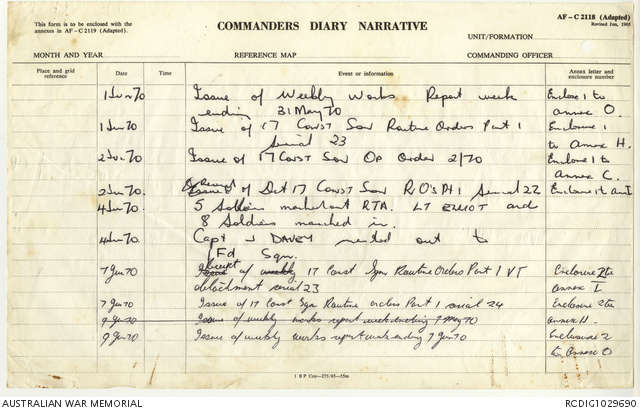 This form is to be enclosed with the
annexes in AF – C 2119 (Adapted).
COMMANDERS DIARY NARRATIVE
AF – C 2118 (Adapted)
Revised Jan, 1965
UNIT/FORMATION
MONTH AND YEAR
REFERENCE MAP
COMMANDING OFFICER
Place and grid reference
Date
Time
Event or information
Annex letter and enclosure number
1 Jun 70 Issue of Weekly Works Report week Enclosure 1 to
ending 31 May 70 annex O.
1 Jun 70 Issue of 17 Const Sqn Routine Orders Part 1 Enclosure 1
Serial 23 to annex H.
2 Jun 70 Issue of 17 Const Sqn Op Order 2/70 Enclosure 1 to
annex C.
2 Jun 70 Receipt of Det 17 Const Sqn R/O's Pt 1 Serial 22 Enclosure 1 to ann I
4 Jun 70 5 Soldiers marched out RTA. LT ELLIOT and
8 Soldiers marched in.
4 Jun 70 Capt J DAVEY marched out to
1 Fd Sqn.
7 Jun 70 Issue Receipt of weekly 17 Const Sqn Routine Orders Part 1 VT Enclosure 2 to
detachment serial 23 annex I.
7 Jun 70 Issue of 17 Const Sqn Routine orders Part 1 serial 24 Enclosure 2 to
annex H.
9 Jun 70 Issue of weekly works report week ending 7 May 70
9 Jun 70 Issue of weekly works report week ending 7 Jun 70 Enclosure 2
to annex O
AUSTRALIAN WAR MEMORIAL
RCDIG1029690